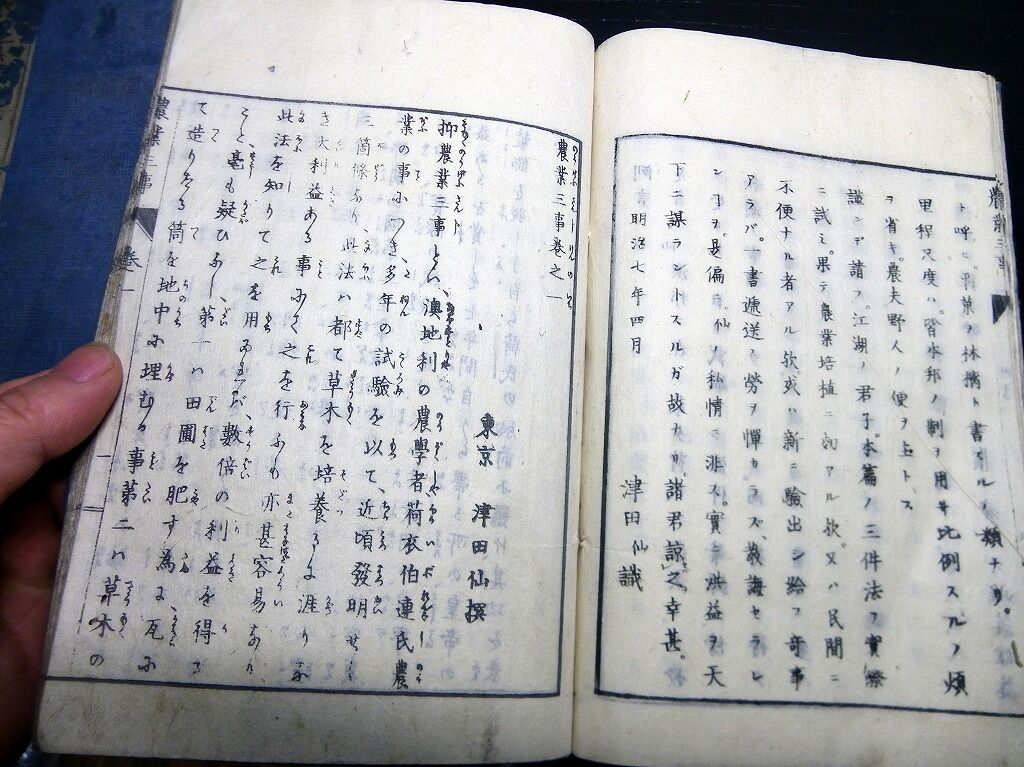 ト呼ビ、苹菓ヲ林擒ト書スルノ類ナリ。
里程尺度ハ。皆本邦ノ制ヲ用ヰ比例スルノ煩
ヲ省キ。農夫野人ノ便ヲ主トス
謹ンデ請フ。江湖ノ君子。本篇ノ三件法ヲ實際
ニ試ミ。果テ農業培植ニ功アル欤。又ハ民間ニ
不便ナル者アル欤。或ハ新ニ驗出シ給フ奇事
アラバ。一書遞送ノ勞ヲ憚カラズ、教誨セラレ
ンヿヲ。是偏ニ仙ノ私情ニ非ス。實ニ洪益ヲ天
下ニ謀ラントスルガ故ナリ。諸君諒之。幸甚。
明治七年四月 津田仙識
農業三事巻之一
東京 津田仙撰
抑農業三事とハ、澳地利の農學者荷衣伯連氏農
業の事につき多年の試驗を以て、近頃發明せし
三箇條なり、此法ハ都て草木を培養るに涯りな
き大利益ある事にて之を行ふも亦甚容易なり、
此法を知りて之を用ゐれバ、數倍の利益を得る
こと、毫も疑ひなし、第一ハ田圃を肥す為に、瓦に
て造りたる筒を地中に埋むる事第二ハ草木の
農業三事 巻一